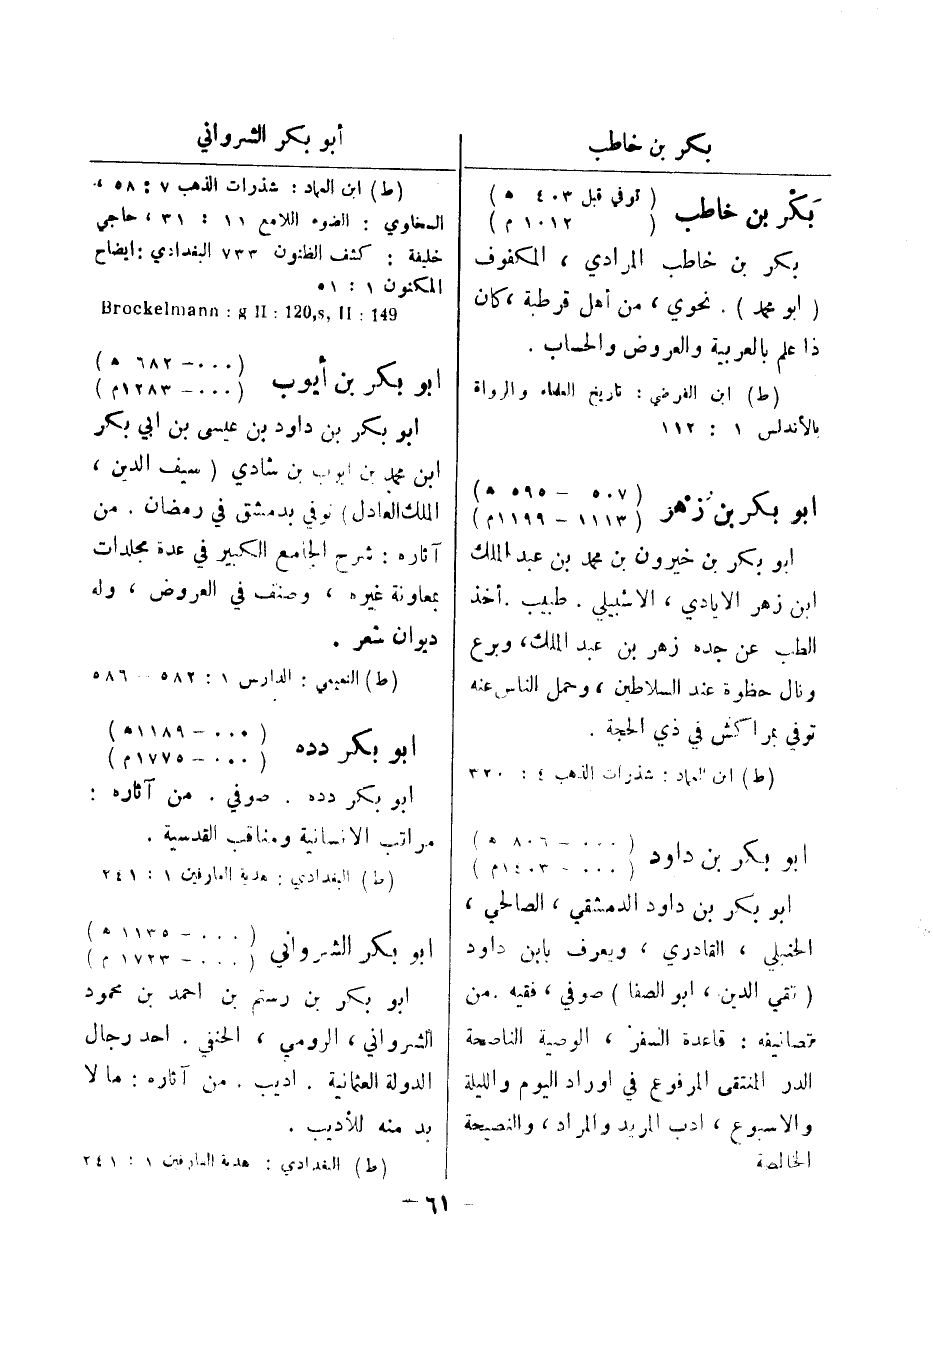 بكر بن خاطب
بَكْر بن خاطب
( توفي قبل ٤٠٣ ه )
( ١٠١٢ م )
بكر بن خاطب المرادي ، المكفوف
( ابو محمد ) . نحوي ، من أهل قرطبة ، كان
ذا علم بالعربية والعروض والحساب .
(ط) ابن الفرضي : تاريخ العلماء والرواة
بالأندلس ١ : ١١٢
ابو بكر بن زُهْر
( ٥٠٧ – ٥٩٥ ه )
( ١١١٣ – ١١٩٩م )
ابو بكر بن خيرون بن محمد بن عبد الملك
ابن زهر الايادي ، الاشبيلي . طبيب . أخذ
الطب عن جده زهر بن عبد الملك، وبرع
ونال حظوة عند السلاطين ، وحمل الناس عنه
توفي بمراكش في ذي الحجة .
(ط) ابن العماد : شذرات الذهب ٤ : ٣٢٠
ابو بكر بن داود
( ٠٠٠ – ٨٠٦ ه )
( ٠٠٠ – ١٤٠٣م )
ابو بكر بن داود الدمشقي ، الصالحي ،
الحنبلي ، القادري ، ويعرف بابن داود
( تقي الدين ، ابو الصفا ) صوفي ، فقيه . من
تصانيفه : قاعدة السفر ، الوصية الناصحة
الدر المنتقى المرفوع في اوراد اليوم والليلة
والاسبوع ، ادب المريد والمراد ، والنصيحة
الخالصة
أبو بكر الشرواني
(ط) ابن العماد : شذرات الذهب ٧ : ٥٨ ،
السخاوي : الضوء اللامع ١١ : ٣١ ، حاجي
خليفة : كشف الظنون ٧٣٣ البغدادي : ايضاح
المكنون ١ : ٥١
Brockelmann : g II : 120,s, II : 149
ابو بكر بن أيوب
( ٠٠٠ – ٦٨٢ ه )
( ٠٠٠ – ١٢٨٣م )
ابو بكر بن داود بن عيسى بن ابي بكر
ابن محمد بن ايوب بن شادي ( سيف الدين ،
الملك العادل ) توفي بدمشق في رمضان . من
آثاره : شرح الجامع الكبير في عدة مجلدات
بمعاونة غيره ، وصنف في العروض ، وله
ديوان شعر .
(ط) النعيمي : الدارس ١ : ٥٨٢ – ٥٨٦
ابو بكر دده
( ٠٠٠ – ١١٨٩ه )
( ٠٠٠ – ١٧٧٥م )
ابو بكر دده . صوفي . من آثاره :
مراتب الانسانية ومناقب القدسية .
(ط) البغدادي : هدية العارفين ١ : ٢٤١
ابو بكر الشرواني
( ٠٠٠ – ١١٣٥ ه )
( ٠٠٠ – ١٧٢٣ م )
ابو بكر بن رستم بن احمد بن محمود
الشرواني ، الرومي ، الحنفي . احد رجال
الدولة العثمانية . اديب . من آثاره : ما لا
بد منه للأديب .
(ط) البغدادي : هدية العارفين ١ : ٢٤١
– ٦١ –